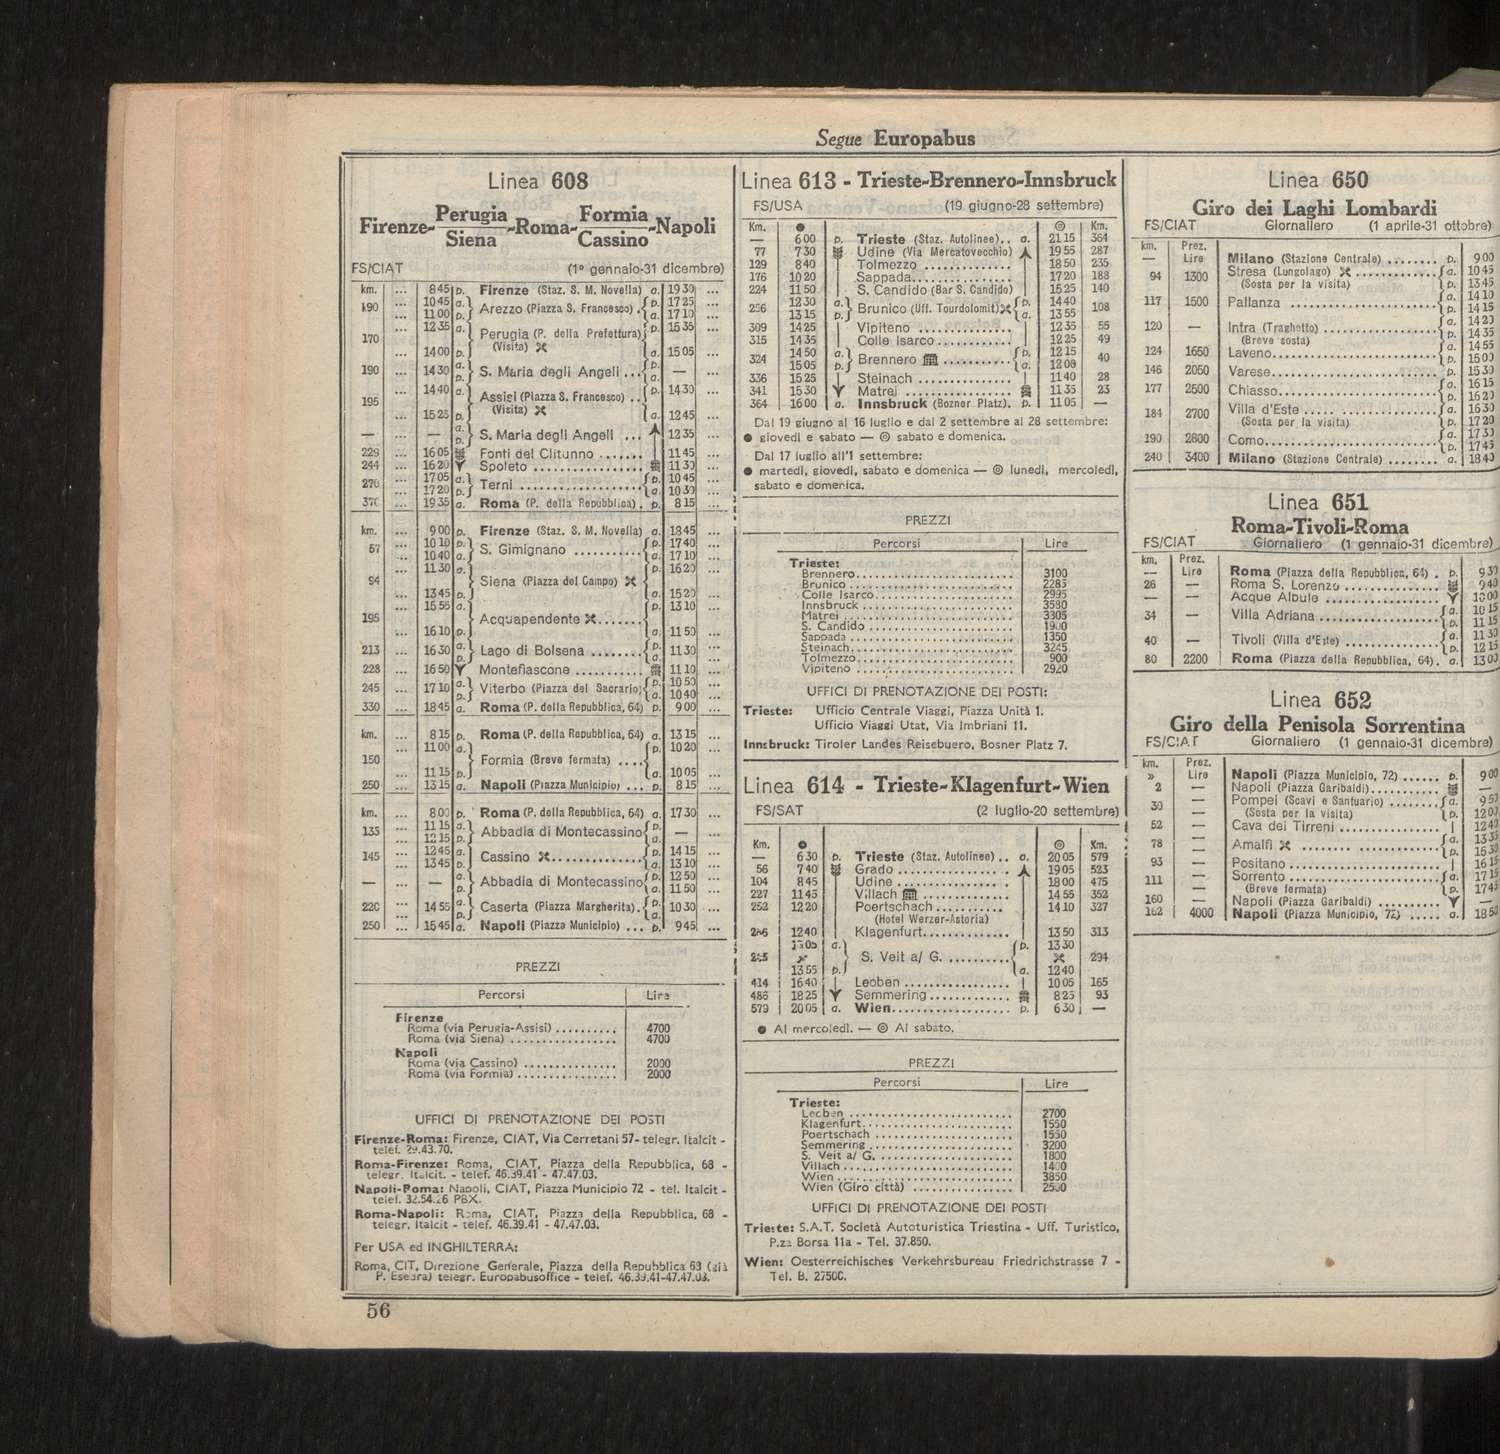 Segue Europabus
Linea 608
Firenze-Perugia/Siena-Roma-Formia/Cassino-Napoli
FS/CIAT (1° gennaio-31 dicembre)
km. ... 8 45 p. Firenze (Staz. S. M. Novella) a. 19 30 ...
... 10 45 a. p. 17 25 ...
k90 ... 11 00 p. Arezzo (Piazza S. Francesco) . a. 17 10 ...
... 12 35 a. Perugia (P. della Prefettura) p. 15 35 ...
170 (Visita)
... 14 00 p. a. 15 05 ...
190 ... 14 30 a. p. S. Maria degli Angeli ... p. a. — ...
... 14 40 a. Assisi (Piazza S. Francesco) .. p. 14 30 ...
195 (Visita)
... 15 25 p. a. 12 45 ...
— ... — a. p. S. Maria degli Angeli ... 12 35 ...
229 ... 16 05 Fonti del Clitunno ....... 11 45 ...
244 ... 16 20 Spoleto ................ 11 30 ...
270 ... 17 05 a. Terni .................... p. 10 45 ...
... 17 20 p. a. 10 30 ...
370 ... 19 35 a. Roma (P. della Repubblica) . p. 8 15 ...
km. ... 9 00 p. Firenze (Staz. S. M. Novella) a. 18 45 ...
57 ... 10 10 p. S. Gimignano .......... p. 17 40 ...
... 10 40 a. a. 17 10 ...
... 11 30 a. p. 16 20 ...
94 Siena (Piazza del Campo)
... 13 45 p. a. 15 20 ...
... 15 55 a. p. 13 10 ...
195 Acquapendente .......
... 16 10 p. a. 11 50 ...
213 ... 16 30 a. p. Lago di Bolsena ........ p. a. 11 30 ...
228 ... 16 50 Montefiascone .......... 11 10 ...
245 ... 17 10 a. p. Viterbo (Piazza del Sacrario) p. 10 50 ...
a. 10 40 ...
330 ... 18 45 a. Roma (P. della Repubblica, 64) p. 9 00 ...
km. ... 8 15 p. Roma (P. della Repubblica, 64) a. 13 15 ...
... 11 00 a. p. 10 20 ...
150 Formia (Breve fermata) ....
... 11 15 p. a. 10 05 ...
250 ... 13 15 a. Napoli (Piazza Municipio) ... p. 8 15 ...
km. ... 8 00 p. Roma (P. della Repubblica, 64) a. 17 30 ...
135 ... 11 15 a. Abbadia di Montecassino p. — ...
... 12 15 p. a.
145 ... 12 45 a. Cassino ............ p. 14 15 ...
... 13 45 p. a. 13 10 ...
— ... — a. p. Abbadia di Montecassino p. 12 50 ...
a. 11 50 ...
220 ... 14 55 a. p. Caserta (Piazza Margherita). p. a. 10 30 ...
250 ... 15 45 a. Napoli (Piazza Municipio) ... p. 9 45 ...
PREZZI
Percorsi Lire
Firenze
Roma (via Perugia-Assisi) .......... 4700
Roma (via Siena) ................. 4700
Napoli
Roma (via Cassino) ............... 2000
Roma (via Formia) ................ 2000
UFFICI DI PRENOTAZIONE DEI POSTI
Firenze-Roma: Firenze, CIAT, Via Cerretani 57- telegr. Italcit -
telef. 29.43.70.
Roma-Firenze: Roma, CIAT, Piazza della Repubblica, 68 -
telegr. Italcit. - telef. 46.39.41 - 47.47.03.
Napoli-Roma: Napoli, CIAT, Piazza Municipio 72 - tel. Italcit -
telef. 32.54.26 PBX.
Roma-Napoli: Roma, CIAT, Piazza della Repubblica, 68 -
telegr. Italcit - telef. 46.39.41 - 47.47.03.
Per USA ed INGHILTERRA:
Roma, CIT, Direzione Generale, Piazza della Repubblica 63 (già
P. Esedra) telegr. Europabusoffice - telef. 46.39.41-47.47.03.
56
Linea 613 - Trieste-Brennero-Innsbruck
FS/USA (19 giugno-28 settembre)
Km. ● ◎ Km.
— 6 00 p. Trieste (Staz. Autolinee).. a. 21 15 364
77 7 30 Udine (Via Mercatovecchio) 19 55 287
129 8 40 Tolmezzo .............. 18 50 235
176 10 20 Sappada................ 17 20 188
224 11 50 S. Candido (Bar S. Candido) 15 25 140
256 12 30 a. Brunico (Uff. Tourdolomit) p. 14 40 108
13 15 p. a. 13 55
309 14 25 Vipiteno ............... 12 35 55
315 14 35 Colle Isarco............ 12 25 49
324 14 50 a. Brennero ........... p. 12 15 40
15 05 p. a. 12 00
336 15 25 Steinach ............... 11 40 28
341 15 30 Matrei ................. 11 35 23
364 16 00 a. Innsbruck (Bozner Platz). p. 11 05 —
Dal 19 giugno al 16 luglio e dal 2 settembre al 28 settembre:
● giovedì e sabato — ◎ sabato e domenica.
Dal 17 luglio all'1 settembre:
● martedì, giovedì, sabato e domenica — ◎ lunedì, mercoledì,
sabato e domenica.
PREZZI
Percorsi Lire
Trieste:
Brennero......................... 3100
Brunico ......................... 2285
Colle Isarco...................... 2995
Innsbruck ........................ 3530
Matrei ........................... 3305
S. Candido ....................... 1900
Sappada .......................... 1350
Steinach.......................... 3245
Tolmezzo......................... 900
Vipiteno ......................... 2920
UFFICI DI PRENOTAZIONE DEI POSTI:
Trieste: Ufficio Centrale Viaggi, Piazza Unità 1.
Ufficio Viaggi Utat, Via Imbriani 11.
Innsbruck: Tiroler Landes Reisebuero, Bosner Platz 7.
Linea 614 - Trieste-Klagenfurt-Wien
FS/SAT (2 luglio-20 settembre)
Km. ● ◎ Km.
— 6 30 p. Trieste (Staz. Autolinee) .. a. 20 05 579
56 7 40 Grado ................. 19 05 523
104 8 45 Udine ................. 18 00 475
227 11 45 Villach .............. 14 55 352
252 12 20 Poertschach ........... 14 10 327
(Hotel Werzer-Astoria)
266 12 40 Klagenfurt.............. 13 50 313
13 05 a. p. 13 30
S. Veit a/ G. .......... 294
13 55 p. a. 12 40
414 16 40 Leoben ................. 10 05 165
486 18 25 Semmering............. 8 25 93
579 20 05 a. Wien................... p. 6 30 —
● Al mercoledì. — ◎ Al sabato.
PREZZI
Percorsi Lire
Trieste:
Leoben .......................... 2700
Klagenfurt........................ 1550
Poertschach ...................... 1550
Semmering ....................... 3200
S. Veit a/ G. ..................... 1800
Villach ........................... 1400
Wien............................. 3850
Wien (Giro città) ................ 2500
UFFICI DI PRENOTAZIONE DEI POSTI
Trieste: S.A.T. Società Autoturistica Triestina - Uff. Turistico,
P.za Borsa 11a - Tel. 37.850.
Wien: Oesterreichisches Verkehrsbureau Friedrichstrasse 7 -
Tel. B. 27500.
Linea 650
Giro dei Laghi Lombardi
FS/CIAT Giornaliero (1 aprile-31 ottobre)
km. Prez.
— Lire Milano (Stazione Centrale) ........ p. 9 00
94 1300 Stresa (Lungolago) ............ a. 10 45
(Sosta per la visita) p. 13 45
117 1500 Pallanza ..................... a. 14 10
p. 14 15
120 — Intra (Traghetto) ................. a. 14 20
(Breve sosta) p. 14 35
124 1650 Laveno......................... a. 14 55
p. 15 00
146 2050 Varese......................... p. 15 30
177 2500 Chiasso........................ a. 16 15
p. 16 20
184 2700 Villa d'Este ..... ............. a. 16 30
(Sosta per la visita) p. 17 20
190 2800 Como.......................... a. 17 30
p. 17 45
240 3400 Milano (Stazione Centrale) ........ a. 18 40
Linea 651
Roma-Tivoli-Roma
FS/CIAT Giornaliero (1 gennaio-31 dicembre)
km. Prez.
— Lire Roma (Piazza della Repubblica, 64) . p. 9 30
26 — Roma S. Lorenzo ............... 9 40
— — Acque Albule .................. 10 00
34 — Villa Adriana ................... a. 10 15
p. 11 15
40 — Tivoli (Villa d'Este) ............... a. 11 30
p. 12 15
80 2200 Roma (Piazza della Repubblica, 64). a. 13 00
Linea 652
Giro della Penisola Sorrentina
FS/CIAT Giornaliero (1 gennaio-31 dicembre)
km. Prez.
» Lire Napoli (Piazza Municipio, 72) ...... p. 9 00
2 — Napoli (Piazza Garibaldi).......... —
30 — Pompei (Scavi e Santuario) ........ a. 9 50
(Sosta per la visita) p. 12 00
52 — Cava dei Tirreni ................ 12 40
78 — Amalfi ................... a. 13 30
p. 15 30
93 — Positano ....................... 16 15
111 — Sorrento ....................... a. 17 15
(Breve fermata) p. 17 45
160 — Napoli (Piazza Garibaldi) .......... —
162 4000 Napoli (Piazza Municipio, 72) ..... a. 18 50